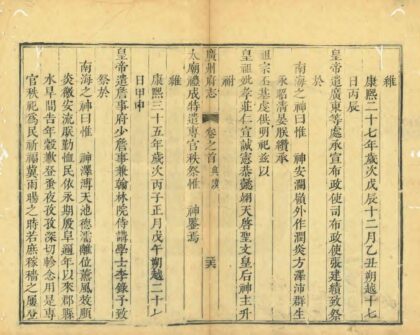 維
康熙二十七年歲次戊辰十二月乙丑朔越十七
日丙辰
皇帝遣廣東等處承宣布政使司布政使張建績致祭
於
南海之神曰惟 神安瀾嶺外作潤炎方澤沛群生
永昭清晏朕纘承
祖宗丕基虔供明祀茲以
皇祖妣孝莊仁宣誠憲恭懿翊天啓聖文皇后神主升
祔
廣州府志 卷之首 典謨
太廟禮成特遣專官秩祭惟 神鑒焉
維
康熙三十五年歲次丙子正月戊午朔越二十七
日甲申
皇帝遣詹事府少詹事兼翰林院侍講學士李錄予致
祭於
南海之神曰惟 神澤溥天池德濡離位薰風效順
炎徼安流朕勤恤民依永期殷阜邇年以來郡縣
水旱間告年穀歉登蚤夜孜孜深切軫念用是專
官秩祀為民祈福冀雨暘之時若庶稼穡之屢登